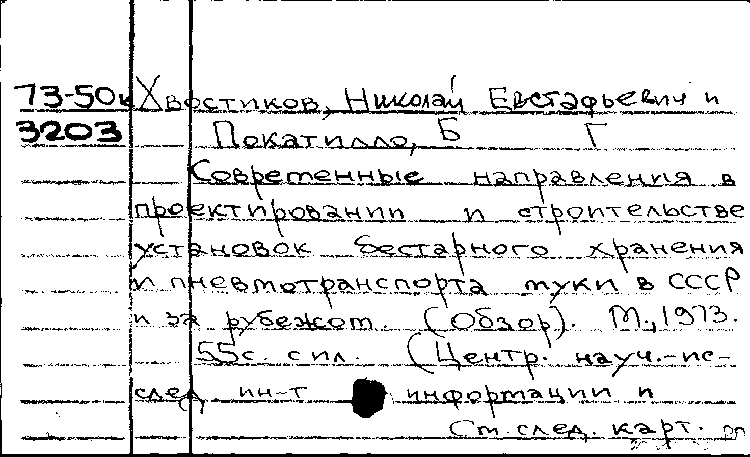 73-50к Хвостиков, Николай Евстафьевич и
3203 Покатилло, Б Г
Современные направления в
проектировании и строительстве
установок бестарного хранения
и пневмотранспорта муки в СССР
и за рубежом. (Обзор). М., 1973.
55с. с ил. (Центр. науч.-ис-
след. ин-т информации и
См. след. карт.